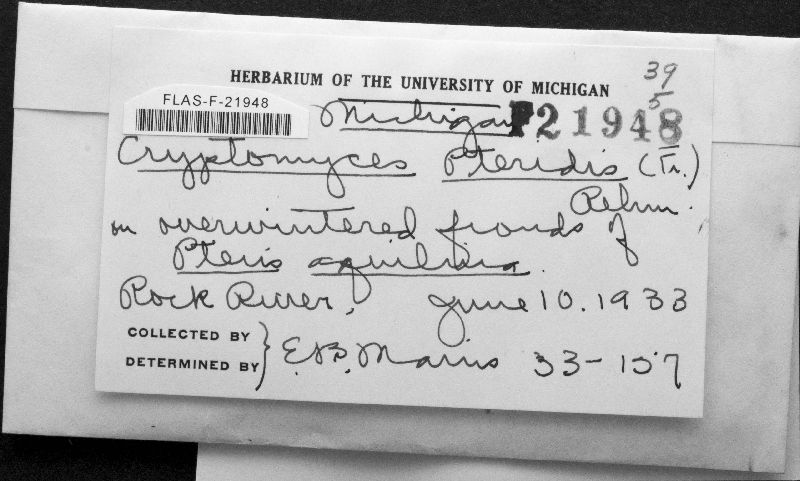 HERBARIUM OF THE UNIVERSITY OF MICHIGAN
39
5
FLAS-F-21948
Michigan F21948
Cryptomyces Pteridis (Fr.)
Rehm.
on overwintered fronds of
Pteris aquilina.
Rock River, June 10. 1933
COLLECTED BY
DETERMINED BY } E.B. Mains 33-157